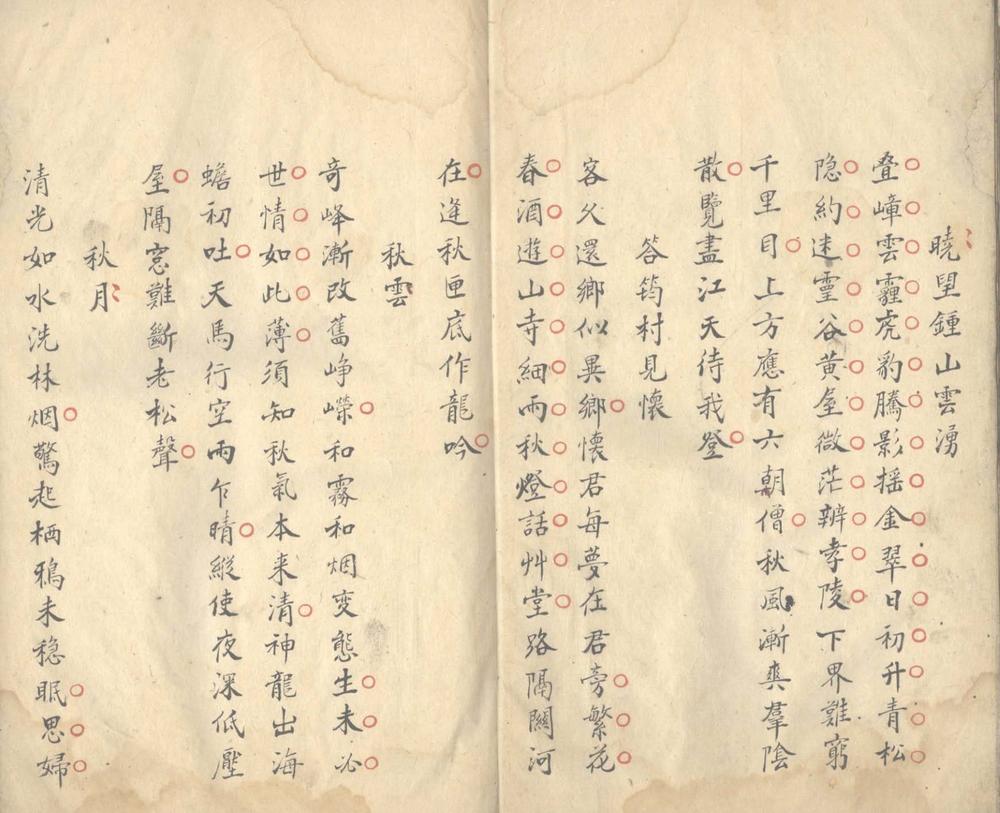 曉望鍾山雲湧
叠嶂雲霾虎豹騰影摇金翠日初升青松
隐約迷靈谷黄屋微茫辨孝陵下界難窮
千里目上方應有六朝僧秋風漸爽羣陰
散覽盡江天待我登
答筠村見懷
客久還鄉似異鄉懷君每夢在君旁繁花
春酒遊山寺細雨秋燈話艸堂路隔關河
在逢秋匣底作龍吟
秋雲
奇峰漸改舊崢嶸和霧和烟变態生未必
世情如此薄須知秋氣本来清神龍出海
蟾初吐天馬行空雨乍晴縱使夜深低壓
屋隔窓難斷老松聲
秋月
清光如水洗林烟驚起栖鴉未穏眠思婦